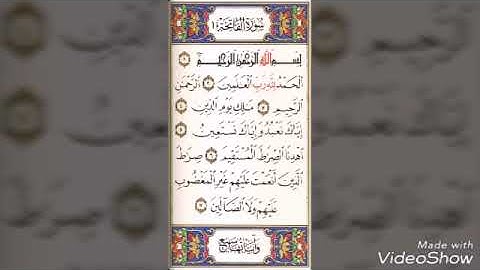 سُورَةُ الْفَاتِحَةِ ١
بِسْمِ اللَّهِ الرَّحْمَٰنِ الرَّحِيمِ ١
الْحَمْدُ لِلَّهِ رَبِّ الْعَٰلَمِينَ ٢ الرَّحْمَٰنِ
الرَّحِيمِ ٣ مَٰلِكِ يَوْمِ الدِّينِ ٤
إِيَّاكَ نَعْبُدُ وَإِيَّاكَ نَسْتَعِينُ ٥
اهْدِنَا الصِّرَٰطَ الْمُسْتَقِيمَ ٦ صِرَٰطَ
الَّذِينَ أَنْعَمْتَ عَلَيْهِمْ غَيْرِ الْمَغْضُوبِ
عَلَيْهِمْ وَلَا الضَّالِّينَ ٧
وَآيَاتُهَا سَبْعٌ
Made with
VideoShow